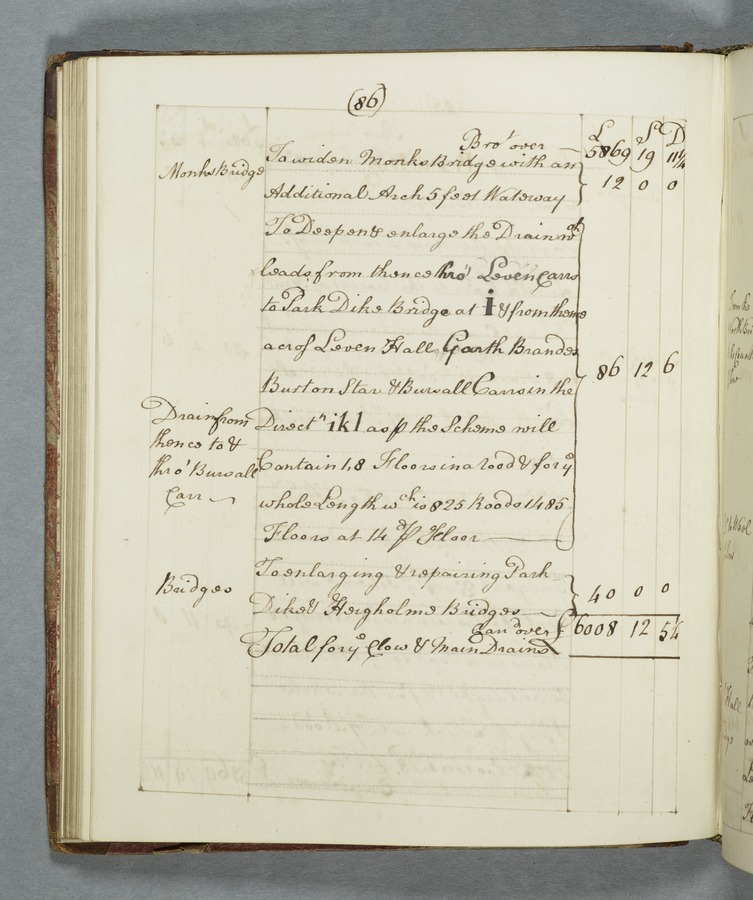 (86)
£ S D
Bro' over 5869 19 11¼
Monks Bridge To widen Monks Bridge with an
Additional Arch 5 feet Waterway 12 0 0
To Deepen & enlarge the Drain wch
leads from thence thro' Leven Carrs
to Park Dike Bridge at i & from thence
across Leven Hall Garth Brandes
Burton Star & Burvall Carrs in the 86 12 6
Drain from Directn ikl as p the Scheme will
thence to &
thro' Burvall Contain 1,8 Floors in a rood & for ye
Carr
whole Length wch is 825 Roods 1485
Floors at 14d p Floor
Bridges To enlarging & repairing Park
Dike & Heigholme Bridges 40 0 0
Carr over
Total for ye Clow & Main Drains £ 6008 12 5¼